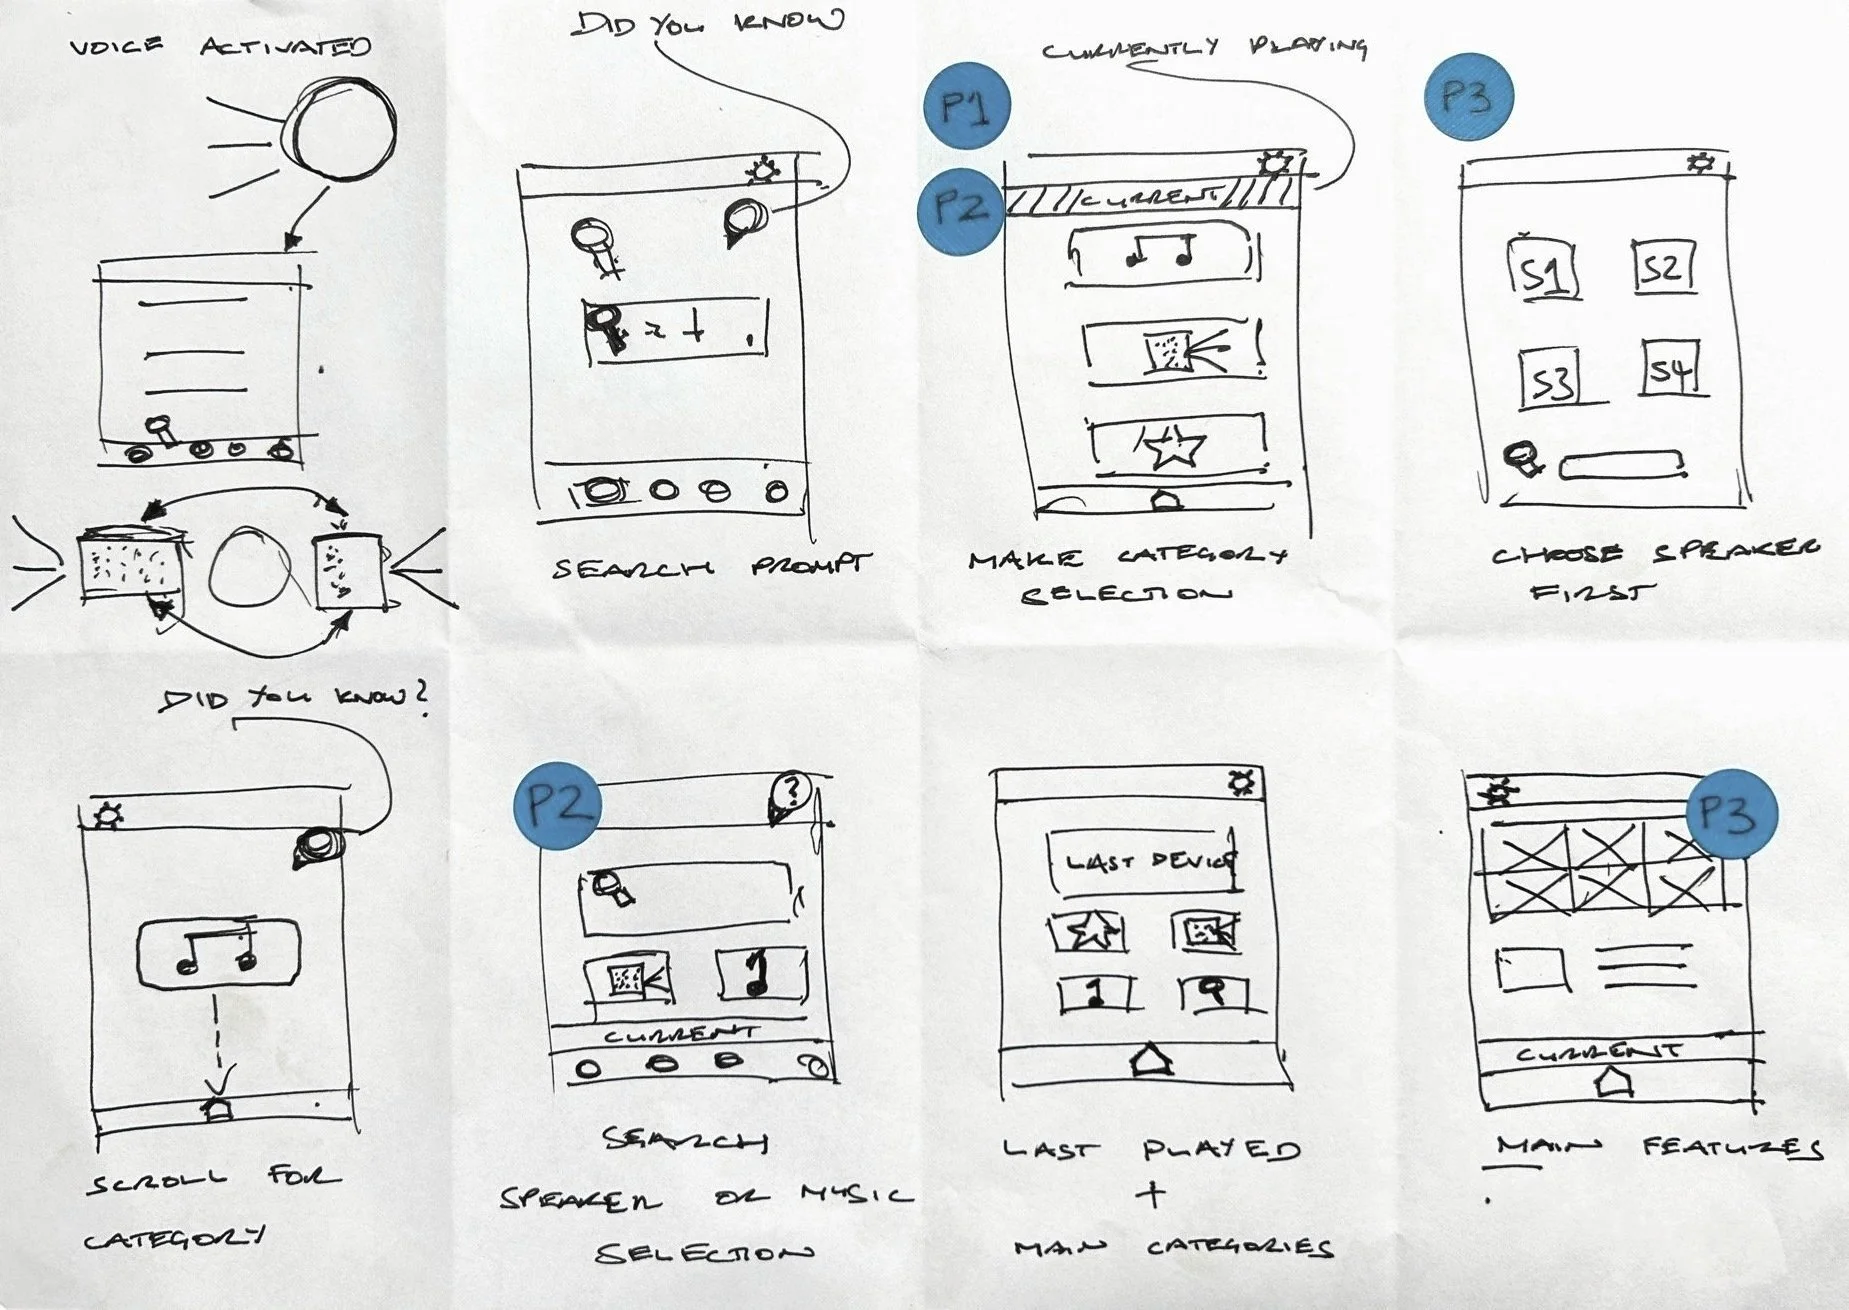 VOICE ACTIVATED
DID YOU KNOW
SEARCH PROMPT
CURRENTLY PLAYING
P1
P2
CURRENT
MAKE CATEGORY
SELECTION
P3
S1 S2
S3 S4
CHOOSE SPEAKER
FIRST
DID YOU KNOW?
SCROLL FOR
CATEGORY
P2
?
CURRENT
SEARCH
SPEAKER OR MUSIC
SELECTION
LAST DEVICE
LAST PLAYED
+
MAIN CATEGORIES
P3
CURRENT
MAIN FEATURES